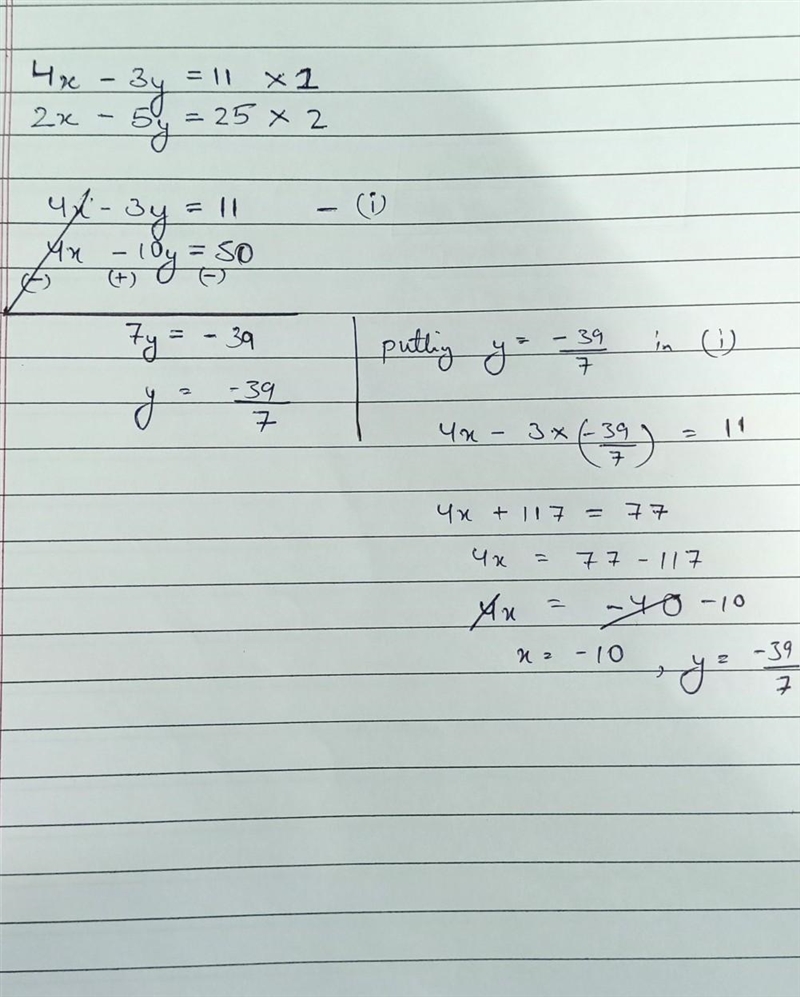 4x - 3y = 11 × 1
2x - 5y = 25 × 2
4x - 3y = 11 - (i)
4x - 10y = 50
(-) (+) (-)
7y = - 39
y = -39/7
putting y = -39/7 in (i)
4x - 3 × (-39/7) = 11
4x + 117 = 77
4x = 77 - 117
4x = -40 -10
x = -10 , y = -39/7